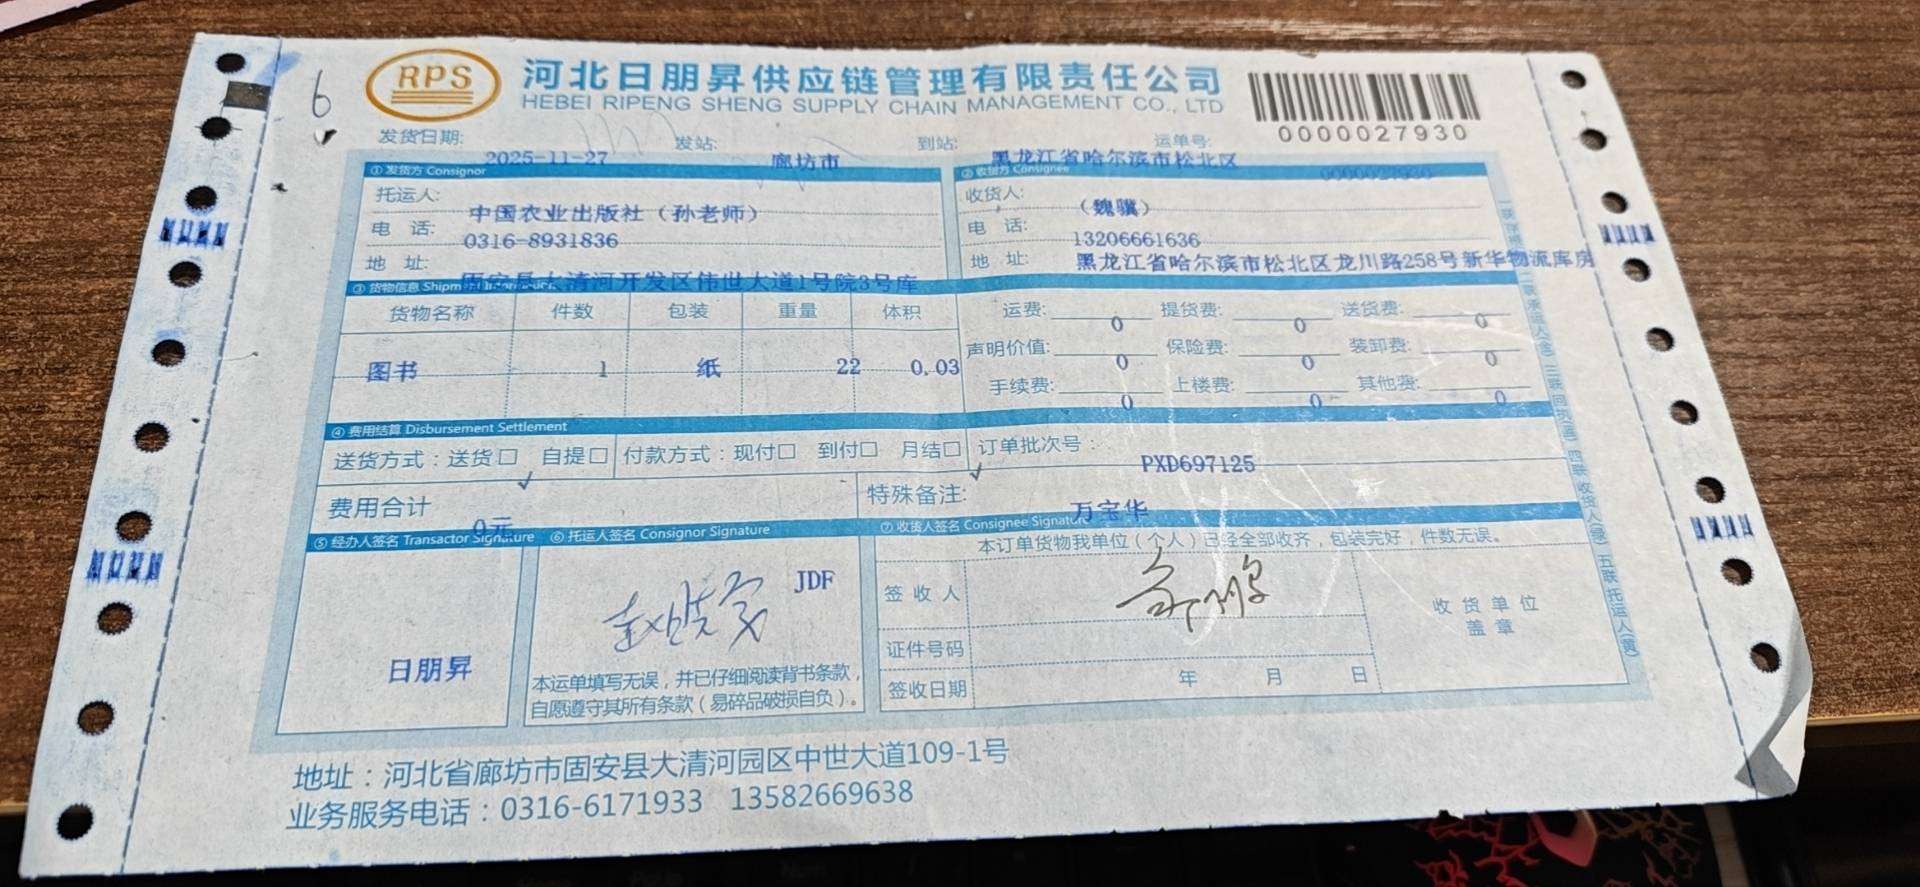 6
RPS
河北日朋昇供应链管理有限责任公司
HEBEI RIPENG SHENG SUPPLY CHAIN MANAGEMENT CO., LTD
0000027930
发货日期: 2025-11-27 发站: 廊坊市 到站: 黑龙江省哈尔滨市松北区 运单号: 0000027930
① 发货方 Consignor ② 收货方 Consignee
托运人: 中国农业出版社（孙老师） 收货人: （魏骥）
电 话: 0316-8931836 电 话: 13206661636
地 址: 固安县大清河开发区伟世大道1号院3号库 地 址: 黑龙江省哈尔滨市松北区龙川路258号新华物流库房
③ 货物信息 Shipment Information
货物名称 件数 包装 重量 体积 运费: 0 提货费: 0 送货费: 0
图书 1 纸 22 0.03 声明价值: 0 保险费: 0 装卸费: 0
手续费: 0 上楼费: 0 其他费: 0
④ 费用结算 Disbursement Settlement
送货方式：送货□ 自提□ 付款方式：现付□ 到付□ 月结□ 订单批次号： PXD697125
✓ ✓
费用合计 0元 特殊备注: 万宝华
⑤ 经办人签名 Transactor Signature ⑥ 托运人签名 Consignor Signature ⑦ 收货人签名 Consignee Signature
本订单货物我单位（个人）已经全部收齐，包装完好，件数无误。
JDF
签 收 人
收 货 单 位
盖 章
日朋昇
证件号码
本运单填写无误，并已仔细阅读背书条款，
自愿遵守其所有条款（易碎品破损自负）。
签收日期 年 月 日
地址：河北省廊坊市固安县大清河园区中世大道109-1号
业务服务电话：0316-6171933 13582669638